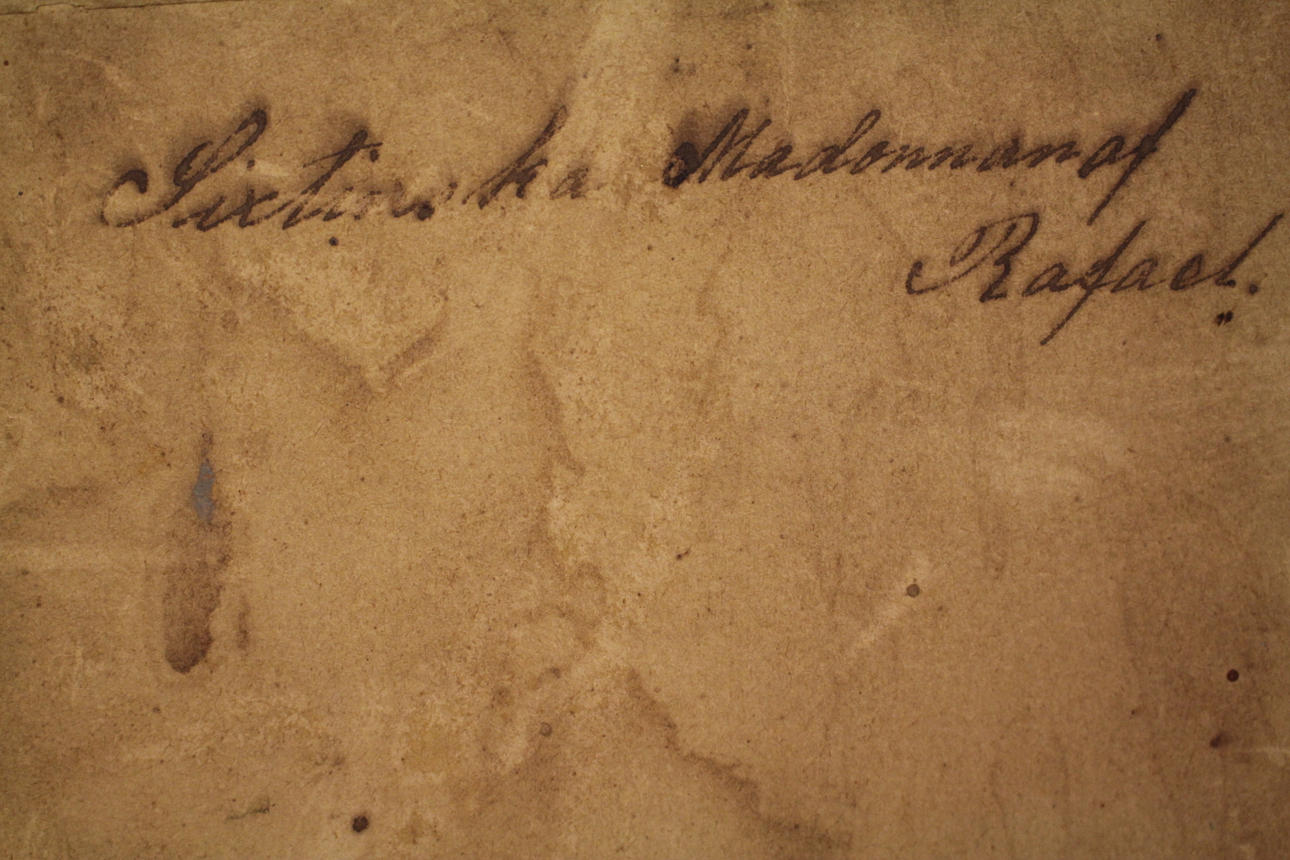 Sixtinska Madonnan af
Rafael.